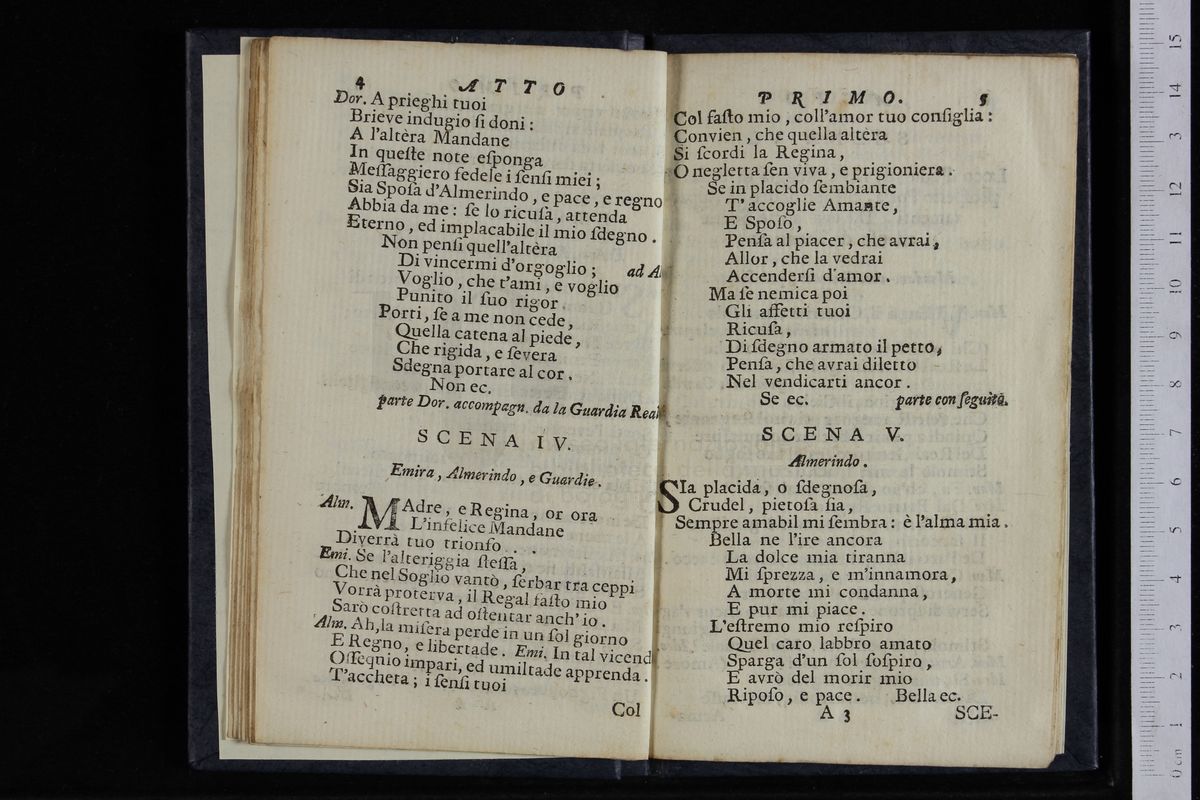 4 ATTO
Dor. A prieghi tuoi
Brieve indugio ſi doni :
A l'altèra Mandane
In queſte note eſponga
Meſſaggiero fedele i ſenſi miei ;
Sia Spoſa d'Almerindo, e pace, e regno
Abbia da me : ſe lo ricuſa, attenda
Eterno, ed implacabile il mio ſdegno .
Non penſi quell'altèra
Di vincermi d'orgoglio ; ad Al
Voglio, che t'ami, e voglio
Punito il ſuo rigor.
Porti, ſe a me non cede,
Quella catena al piede,
Che rigida, e ſevera
Sdegna portare al cor.
Non ec.
parte Dor. accompagn. da la Guardia Real
SCENA IV.
Emira, Almerindo, e Guardie.
Alm. MAdre, e Regina, or ora
L'infelice Mandane
Diverrà tuo trionfo . .
Emi. Se l'alteriggia ſteſſa,
Che nel Soglio vantò, ſerbar tra ceppi
Vorrà proterva, il Regal faſto mio
Sarò coſtretta ad oſtentar anch' io.
Alm. Ah, la miſera perde in un ſol giorno
E Regno, e libertade. Emi. In tal vicend
Oſſequio impari, ed umiltade apprenda.
T'accheta ; i ſenſi tuoi
Col
PRIMO. 5
Col faſto mio, coll'amor tuo conſiglia :
Convien, che quella altèra
Si ſcordi la Regina,
O negletta ſen viva, e prigioniera.
Se in placido ſembiante
T' accoglie Amante,
E Spoſo,
Penſa al piacer, che avrai,
Allor, che la vedrai
Accenderſi d'amor.
Ma ſe nemica poi
Gli affetti tuoi
Ricuſa,
Di ſdegno armato il petto,
Penſa, che avrai diletto
Nel vendicarti ancor.
Se ec. parte con ſeguito.
SCENA V.
Almerindo.
SIa placida, o ſdegnoſa,
Crudel, pietoſa ſia,
Sempre amabil mi ſembra : è l'alma mia.
Bella ne l'ire ancora
La dolce mia tiranna
Mi ſprezza, e m'innamora,
A morte mi condanna,
E pur mi piace.
L'eſtremo mio reſpiro
Quel caro labbro amato
Sparga d'un ſol ſoſpiro,
E avrò del morir mio
Ripoſo, e pace. Bella ec.
A 3 SCE-
0 cm 1 2 3 4 5 6 7 8 9 10 11 12 13 14 15